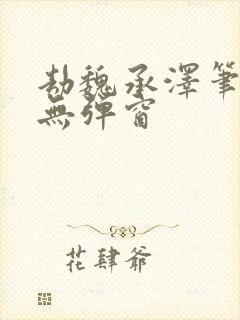 劫魏承澤筆
無彈窗
花肆爺